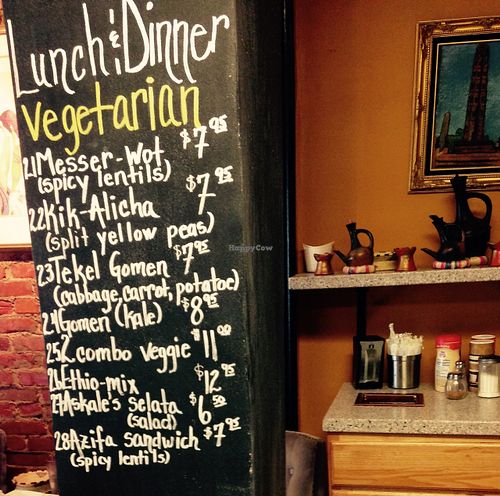 Lunch & Dinner
Vegetarian
21 Messer-Wot $7 95
(spicy lentils)
22 Kik-Alicha $7 95
(split yellow peas)
23 Tekel Gomen $7 95
(cabbage, carrot, potatoe)
24 Gomen (Kale) $8 95
25 2 combo veggie $11 00
26 Ethio-mix $12 95
27 Askale's selata $6 50
(salad)
28 Azifa sandwich $7 95
(spicy lentils)
HappyCow